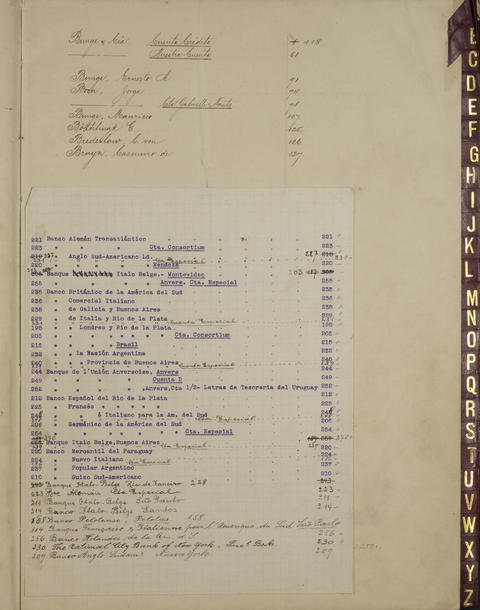 Bunge y Cía Cuenta Crédito 118
Nuestra Cuenta 61
Bunge, Ernesto A. 93
Born, Jorge 94
y Cta. 98
Bunge, Mauricio 107
C. 125
Bredeslow, C. von 126
Bruyn, Casimiro de 127
221 Banco Alemán Transatlántico 221
223 " " " Cta. Consortium 223
" Anglo Sud-Americano Ld. Cta Especial 227
220 " " " Mendoza 220
Banque Italo Belge.- Montevideo 203
255 " " " Anvers. Cta. Especial 255
235 Banco Británico de la América del Sud 235
236 " Comercial Italiano 236
238 " de Galicia y Buenos Aires 238
229 " de Italia y Río de la Plata
196 " " Londres y Río de la Plata 196
205 " " " " " " Cta. Consortium 205
215 " " " " Brasil 215
213 " " la Nación Argentina 213
240 " " Provincia de Buenos Aires 240
244 Banque de l'Unión Anversoise, Anvers 244
249 " " " " Cuenta D 249
252 " " " " ,Anvers,Cta 1/2- Letras de Tesorería del Uruguay 252
212 Banco Español del Río de la Plata 212
225 " Francés " " " " 225
" " é Italiano para la Am. del Sud
206 " Germánico de la América del Sud 206
254 " " " " " " Cta. Especial 254
Banque Italo Belge,Buenos Aires
220 Banco Mercantil del Paraguay 220
224 " Nuevo Italiano
237 " Popular Argentino 237
210 " Suizo Sud-Americano 210
Banque Italo Belge Rio de Janeiro 228
223 Cta Especial 223
211 Banque Italo Belge São Paulo 211
214 Banco Italo Belge Santos 214
158 Banco Pelotense, Pelotas 158
114 Banque Française & Italienne pour l'Amerique du Sud São Paulo
256 Banco Holandes de la Am. d. S. 256
230 The National City Bank of New York, Suc. BsAs. 230
209 Banco Anglo Sudam. Nueva York 209
B
C
D
E
F
G
H
I
J
K
L
M
N
O
P
Q
R
S
T
U
V
W
X
Y
Z